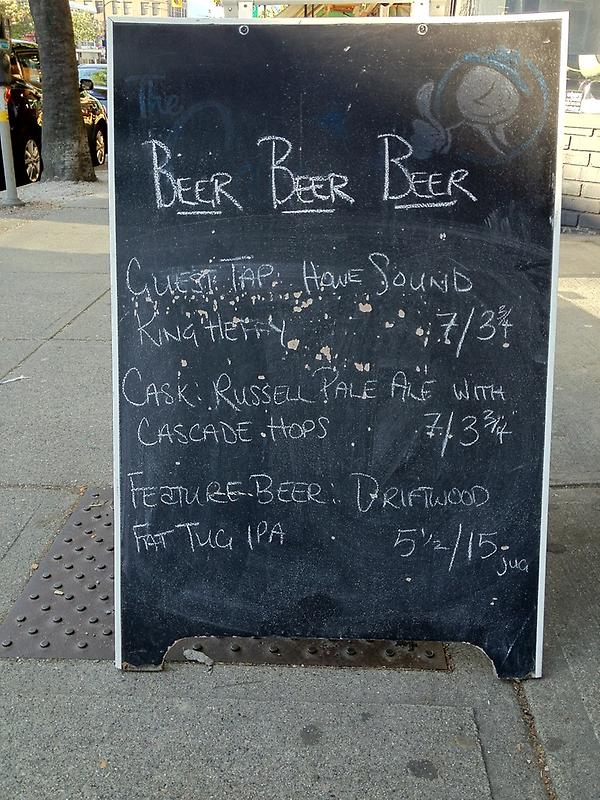 The
BEER BEER BEER
GUEST TAP: HOWE SOUND
KING HEFFY 7/3 3/4
CASK: RUSSELL PALE ALE WITH
CASCADE HOPS 7/3 3/4
FEATURE BEER: DRIFTWOOD
FAT TUG IPA 5 1/2/15 jug